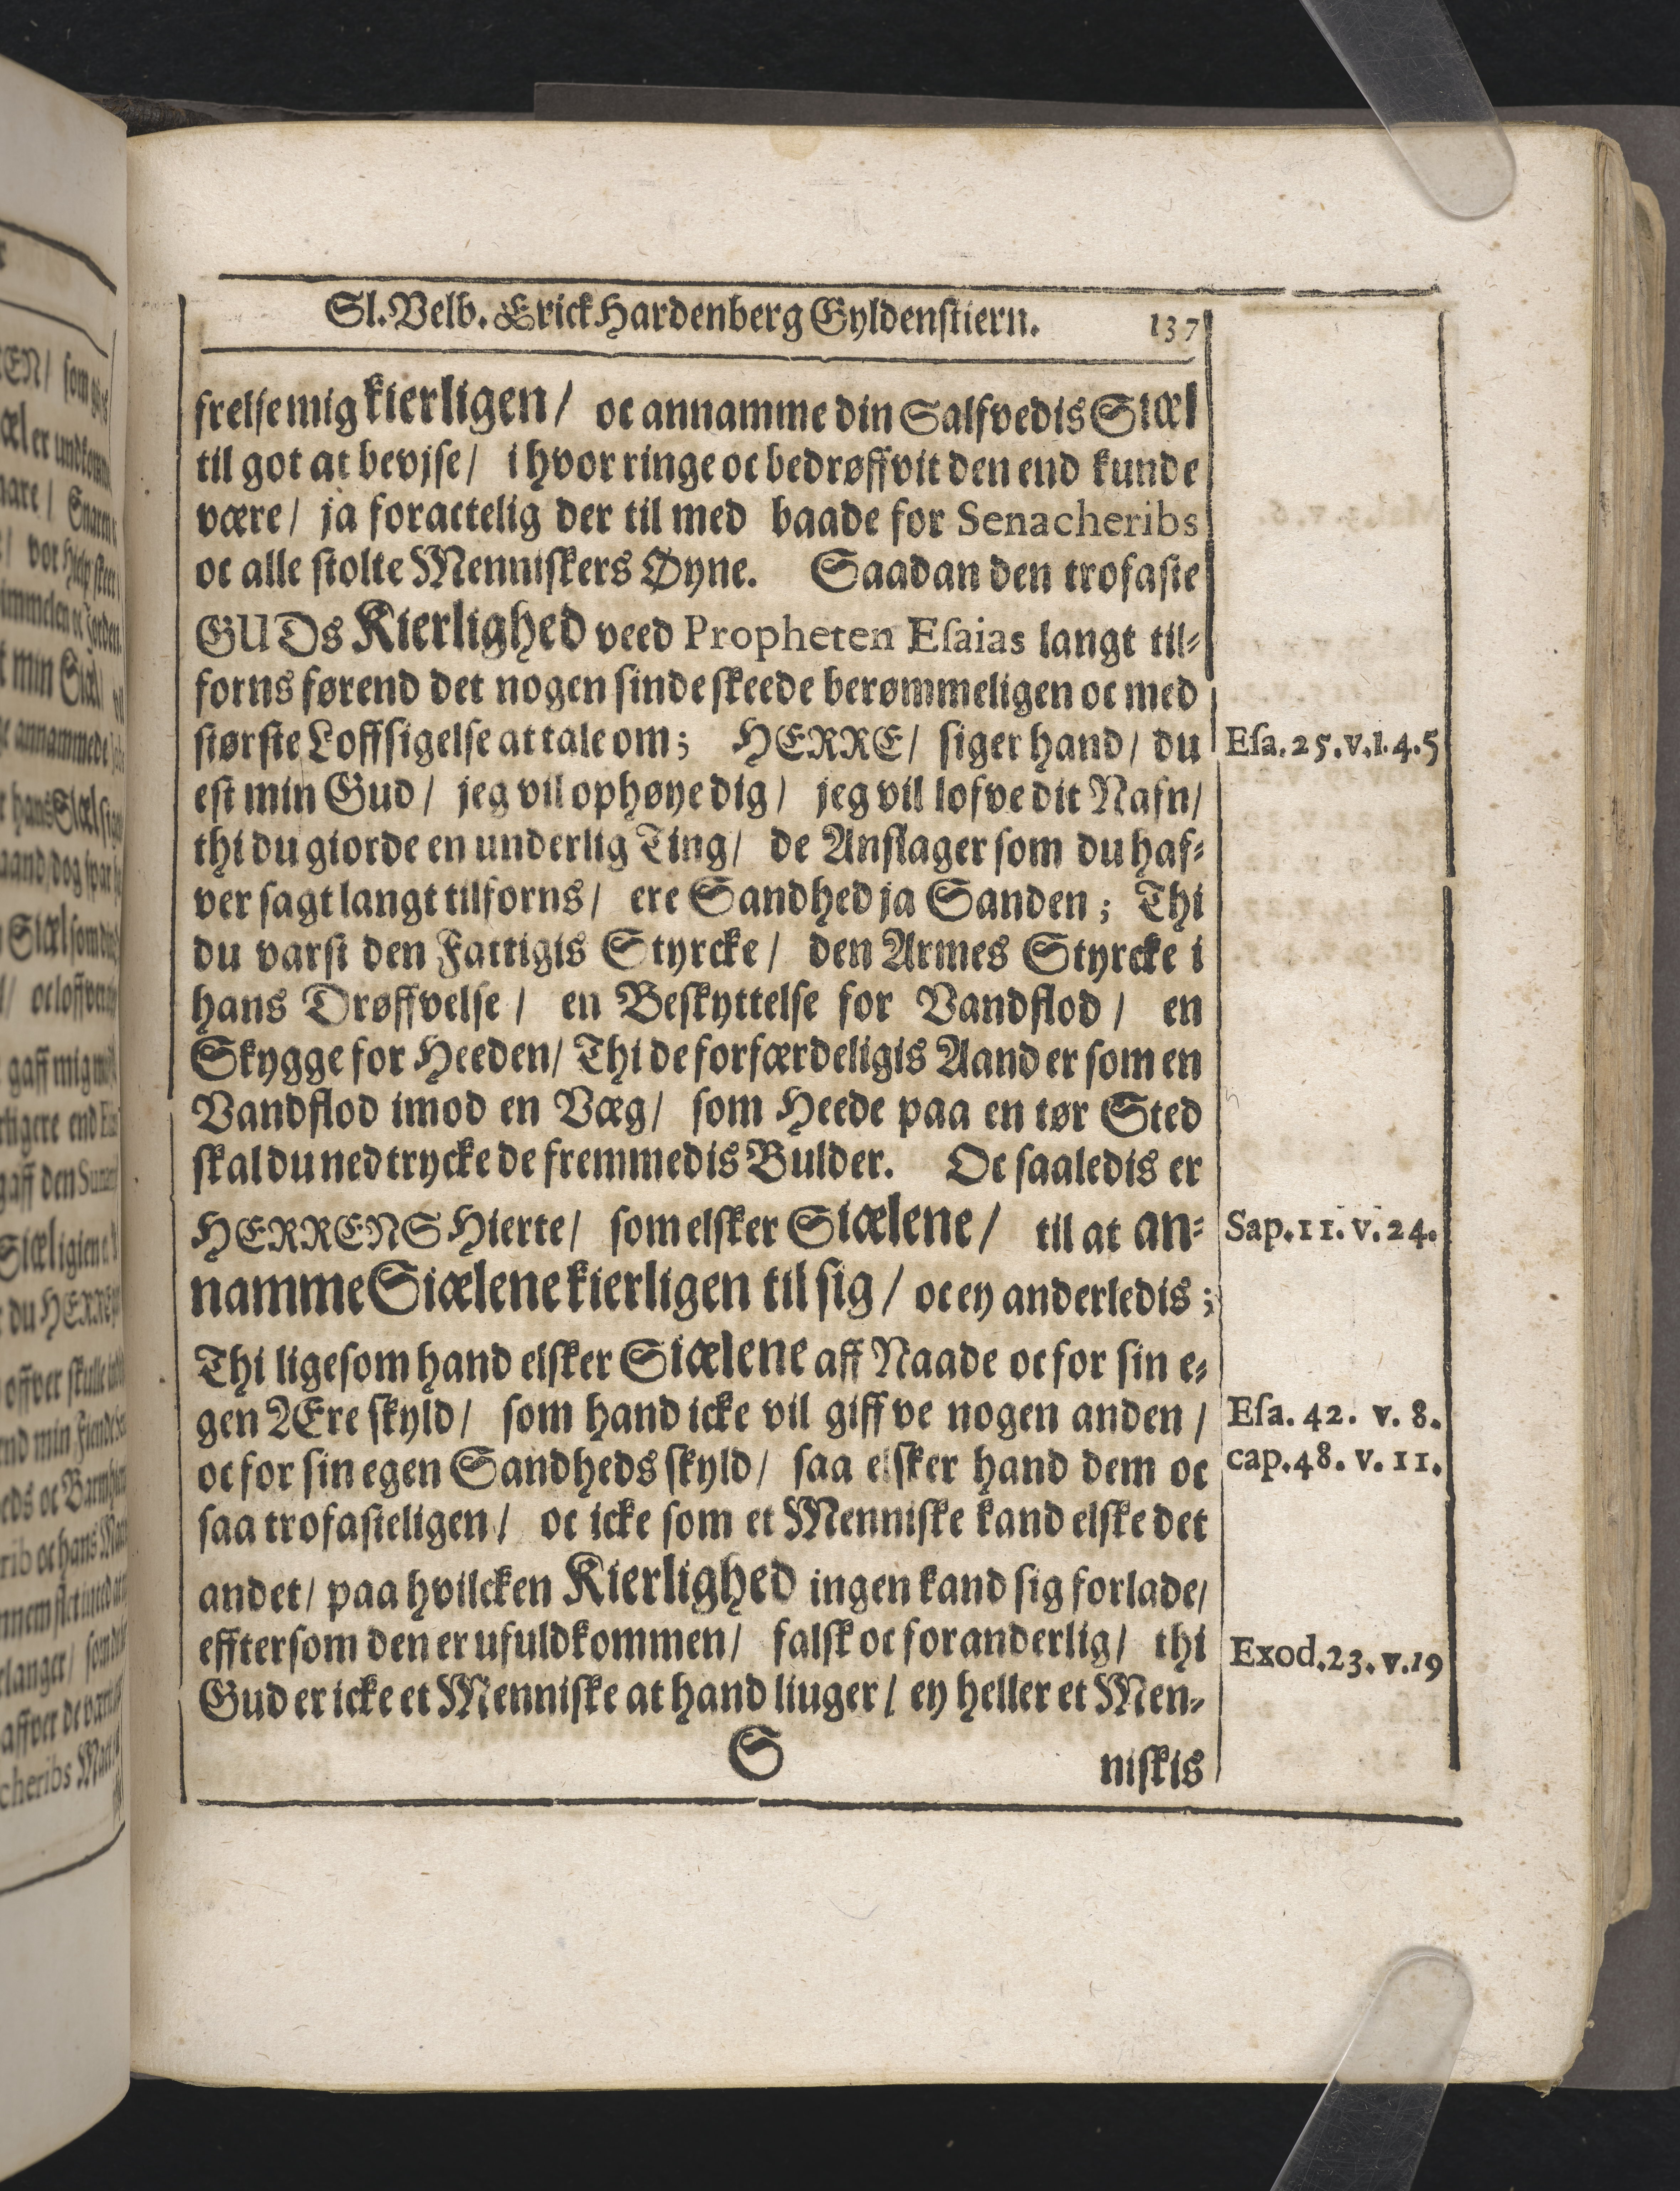 Sl. Velb. Erick Hardenberg Gyldenstiern. 137
frelse mig kierligen / oc annamme din Salfvedis Siæl
til got at bevjse / i hvor ringe oc bedrøffvit den end kunde
være / ja foractelig der til med baade for Senacheribs
oc alle stolte Menniskers Øyne. Saadan den trofaste
GUDs Kierlighed veed Propheten Esaias langt til-
forns førend det nogen sinde skeede berømmeligen oc med
største Loffsigelse at tale om; HERRE / siger hand / du
Esa. 25. v. 1. 4. 5
est min Gud / jeg vil ophøye dig / jeg vil lofve dit Nafn /
thi du giorde en underlig Ting / de Anslager som du haf-
ver sagt langt tilforns / ere Sandhed ja Sanden; Thi
du varst den Fattigis Styrcke / den Armes Styrcke i
hans Drøffvelse / en Beskyttelse for Vandflod / en
Skygge for Heeden / Thi de forfærdeligis Aand er som en
Vandflod imod en Væg / som Heede paa en tør Sted
skal du nedtrycke de fremmedis Bulder. Oc saaledis er
HERRENS Hierte / som elsker Siælene / til at an-
Sap. 11. v. 24.
namme Siælene kierligen til sig / oc ey anderledis;
Thi ligesom hand elsker Siælene aff Naade oc for sin e-
gen Ære skyld / som hand icke vil giffve nogen anden /
Esa. 42. v. 8.
oc for sin egen Sandheds skyld / saa elsker hand dem oc
cap. 48. v. 11.
saa trofasteligen / oc icke som et Menniske kand elske det
andet / paa hvilcken Kierlighed ingen kand sig forlade /
efftersom den er ufuldkommen / falsk oc foranderlig / thi
Exod. 23. v. 19
Gud er icke et Menniske at hand liuger / ey heller et Men-
S niskis